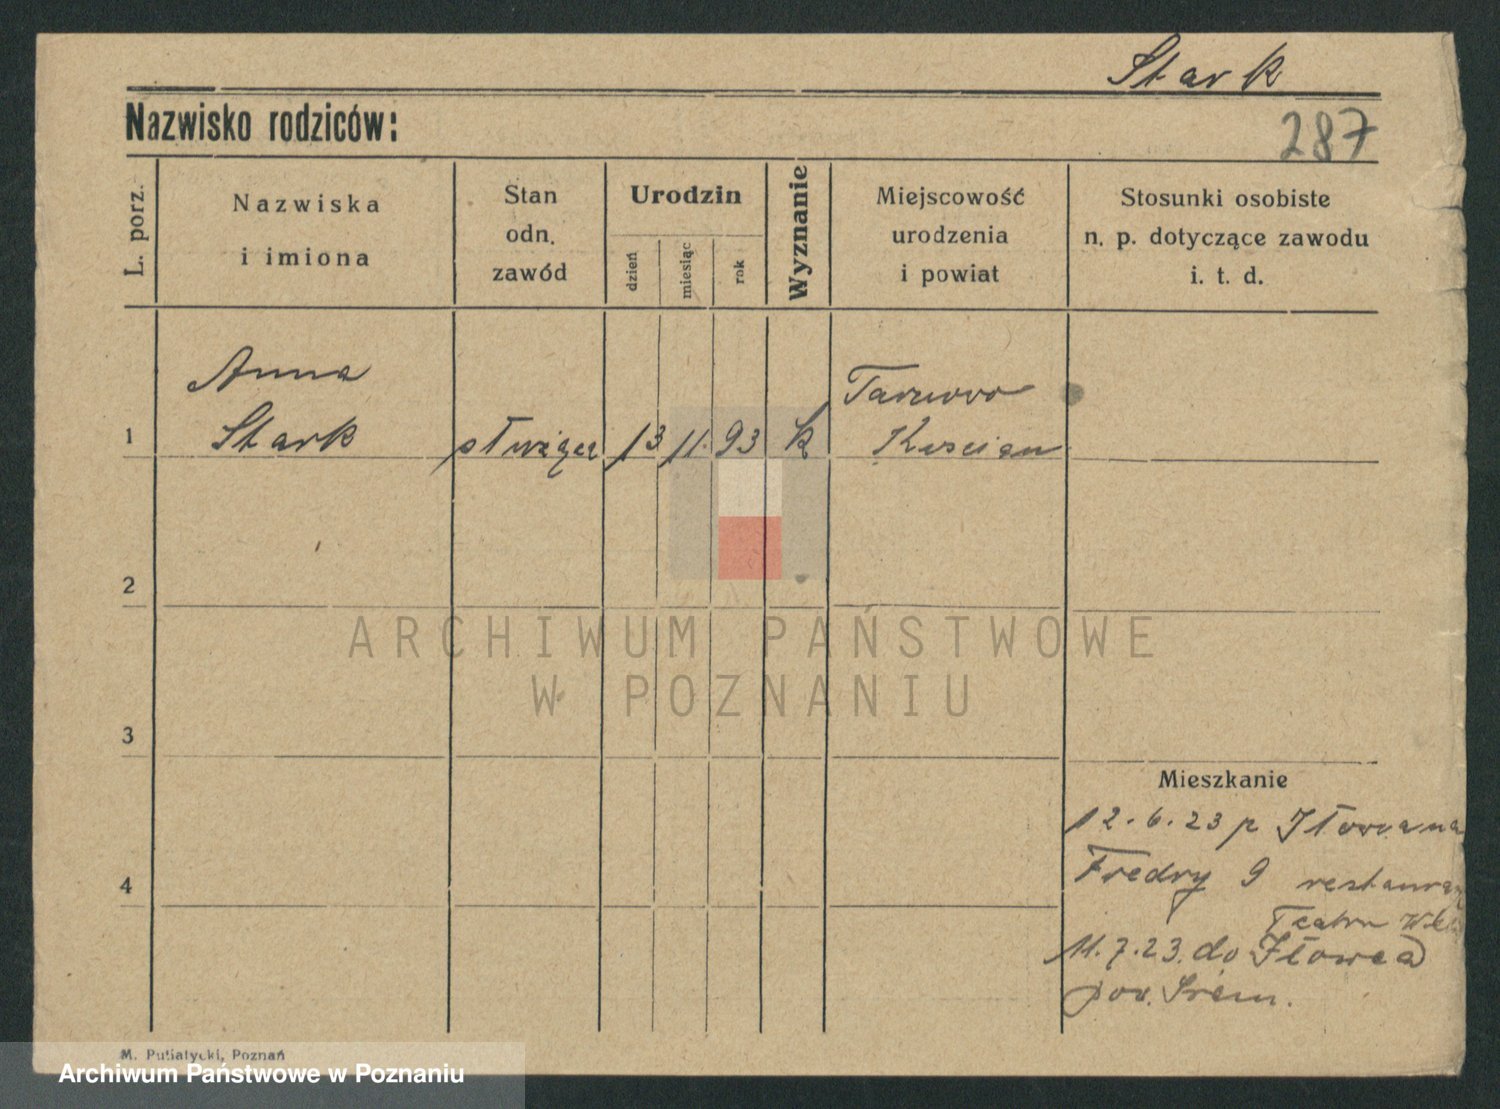 Stark
Nazwisko rodziców:
287
L. porz.
Nazwiska
i imiona
Stan
odn.
zawód
Urodzin
dzień
miesiąc
rok
Wyznanie
Miejscowość
urodzenia
i powiat
Stosunki osobiste
n. p. dotyczące zawodu
i. t. d.
Anna
Stark
1
służąca
13
11.
93
k
Kościan
2
ARCHIWUM PAŃSTWOWE
W POZNANIU
3
Mieszkanie
12.6.23
Fredry 9
Teatru
4
11.7.23. do Iłowca
pow. Śrem.
M. Putiatycki, Poznań
Archiwum Państwowe w Poznaniu